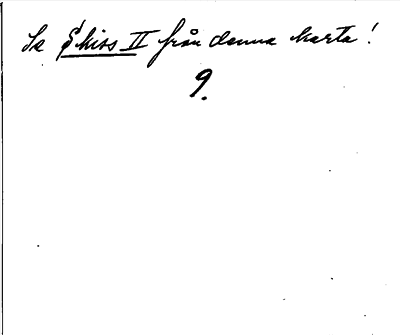 Se Skiss II från denna karta!
9.